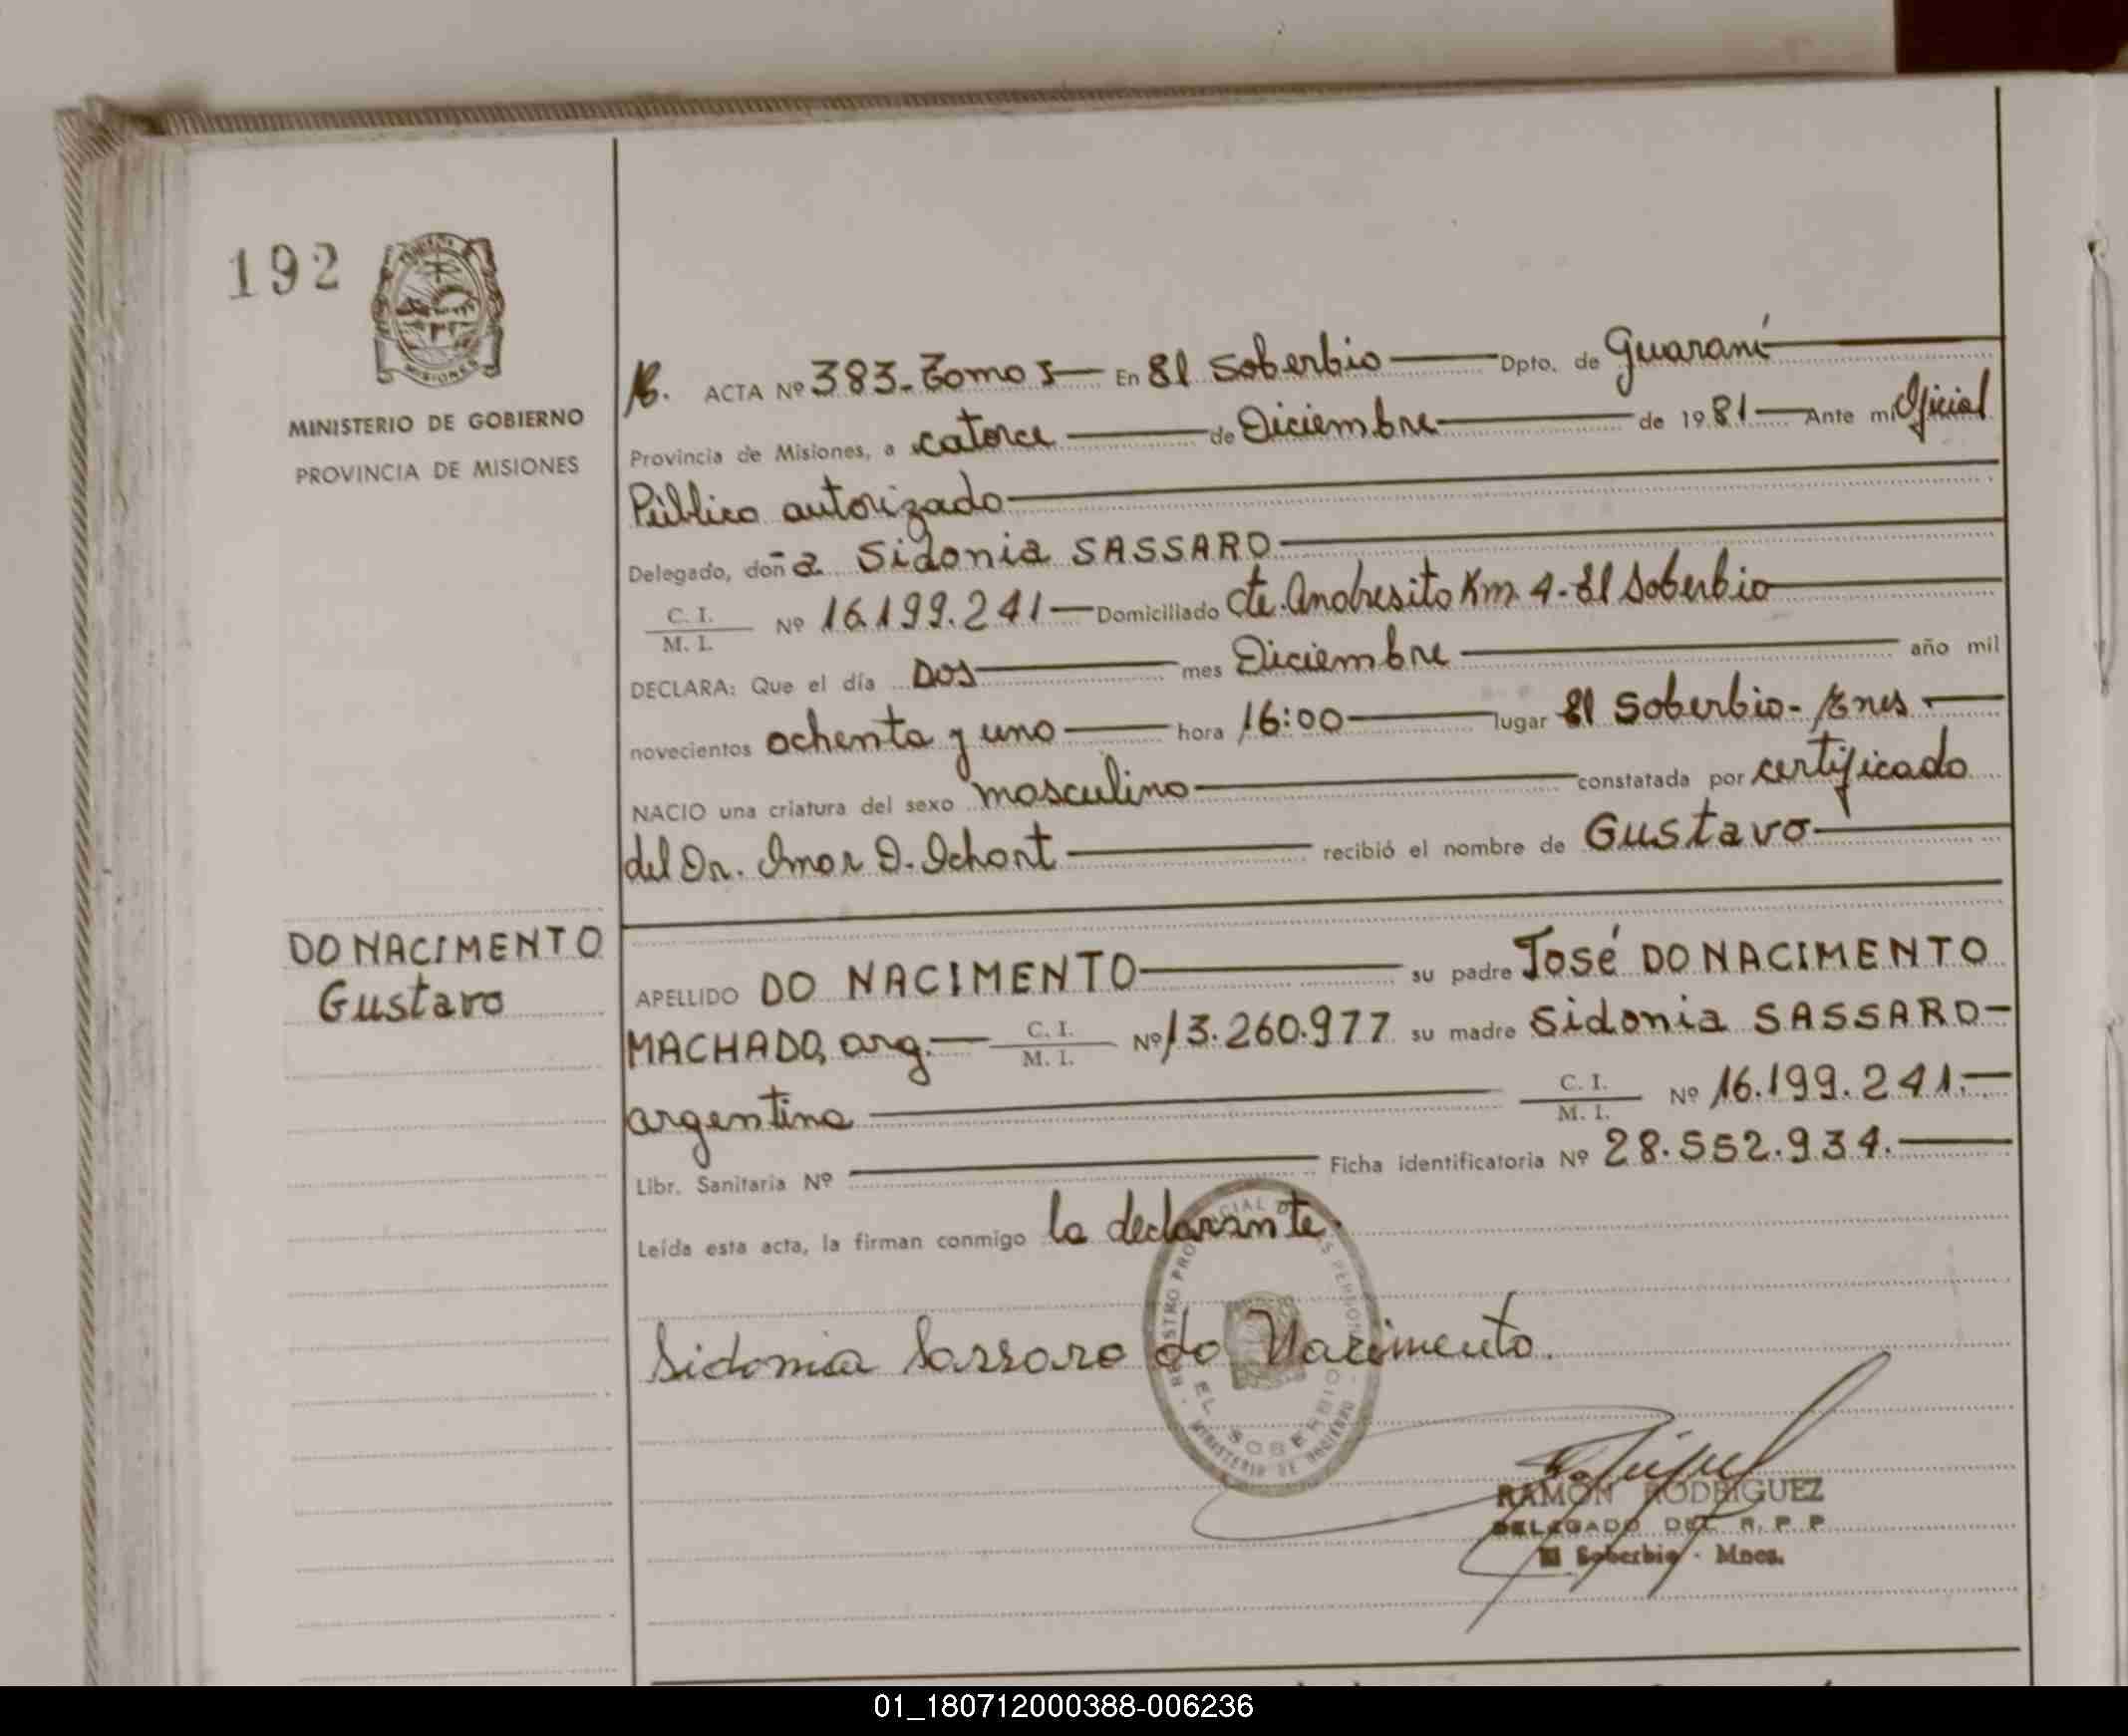 192
MINISTERIO DE GOBIERNO
PROVINCIA DE MISIONES
ACTA Nº 383. Tomo I En El Soberbio Dpto. de Guaraní
Provincia de Misiones, a catorce de Diciembre de 1981 Ante mi Oficial
Público autorizado
Delegado, doña Sidonia SASSARO
C. I.
M. I. Nº 16.199.241 Domiciliado Cte. Andresito Km. 4 - El Soberbio
DECLARA: Que el día Dos mes Diciembre año mil
novecientos ochenta y uno hora 16:00 lugar El Soberbio -
NACIO una criatura del sexo masculino constatada por certificado
del Dr. Omar D. recibió el nombre de Gustavo
DO NACIMENTO
Gustavo
APELLIDO DO NACIMENTO su padre José DO NACIMENTO
MACHADO, arg. C. I. M. I. Nº 13.260.977 su madre Sidonia SASSARO
argentina C. I. M. I. Nº 16.199.241.
Libr. Sanitaria Nº Ficha identificatoria Nº 28.552.934.
Leída esta acta, la firman conmigo la declarante.
Sidonia Sassaro do Nacimento.
EL SOBERBIO
MINISTERIO DE GOBIERNO
RAMON RODRIGUEZ
DELEGADO DEL R. P. P
El Soberbio - Mnes.
01_180712000388-006236